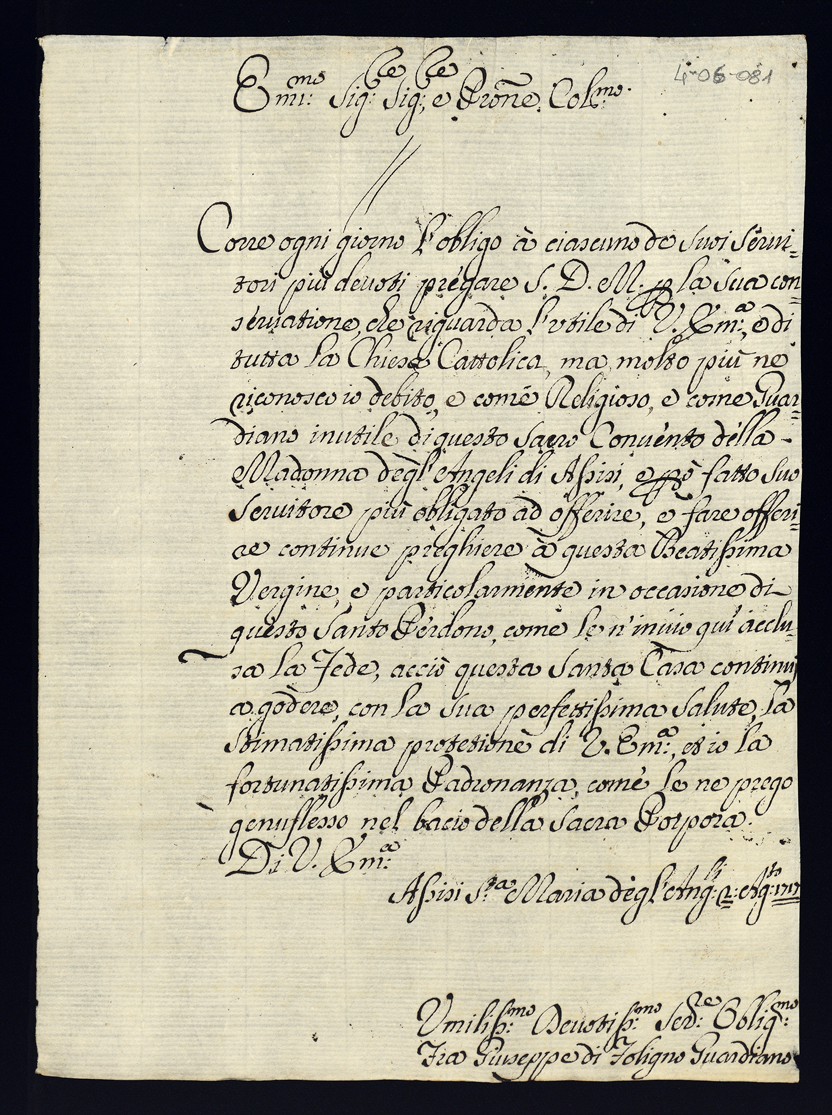 4-06-081
Em̃i:mo Sig:re Sig:re, e Prõne. Col:mo
Corre ogni giorno l'obligo à ciascuno de suoi servi=
tori più devoti pregare S. D. M. p la sua con=
servatione, che riguarda l'vtile di V. Em:a, e di
tutta la Chiesa Cattolica, ma molto più ne
riconosco io debito, e come Religioso, e come Guar=
diano inutile di questo Sacro Convento della -
Madonna degl'Angeli di Assisi, e pò fatto suo
servitore più obligato ad offerire, e fare offeri=
re continue preghiere à questa Beatissima
Vergine, e particolarmente in occasione di
questo Santo Perdono, come le n'invio quì acclu=
sa la Fede, acciò questa Santa Casa continui
a godere, con la sua perfettissima salute, la
stimatissima protetione di V. Em:a, et io la
fortunatissima Padronanza, come le ne prego
genuflesso nel bacio della Sacra Porpora.
Di V. Em:a
Assisi S.ta Maria degl'Ang:li 2: Ag:to 1717
Vmiliss:mo Devotiss:mo Ser:re Oblig:mo
Fra Giuseppe di Foligno Guardiano